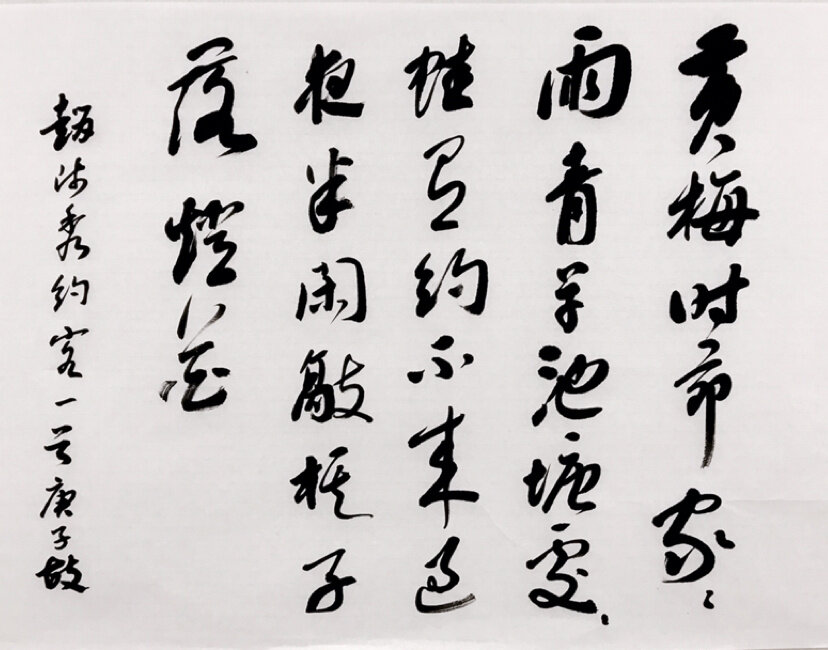 黄梅时节家〻
雨青草池塘处〻
蛙有约不来过
夜半闲敲棋子
落灯花
赵师秀约客一首庚子坡